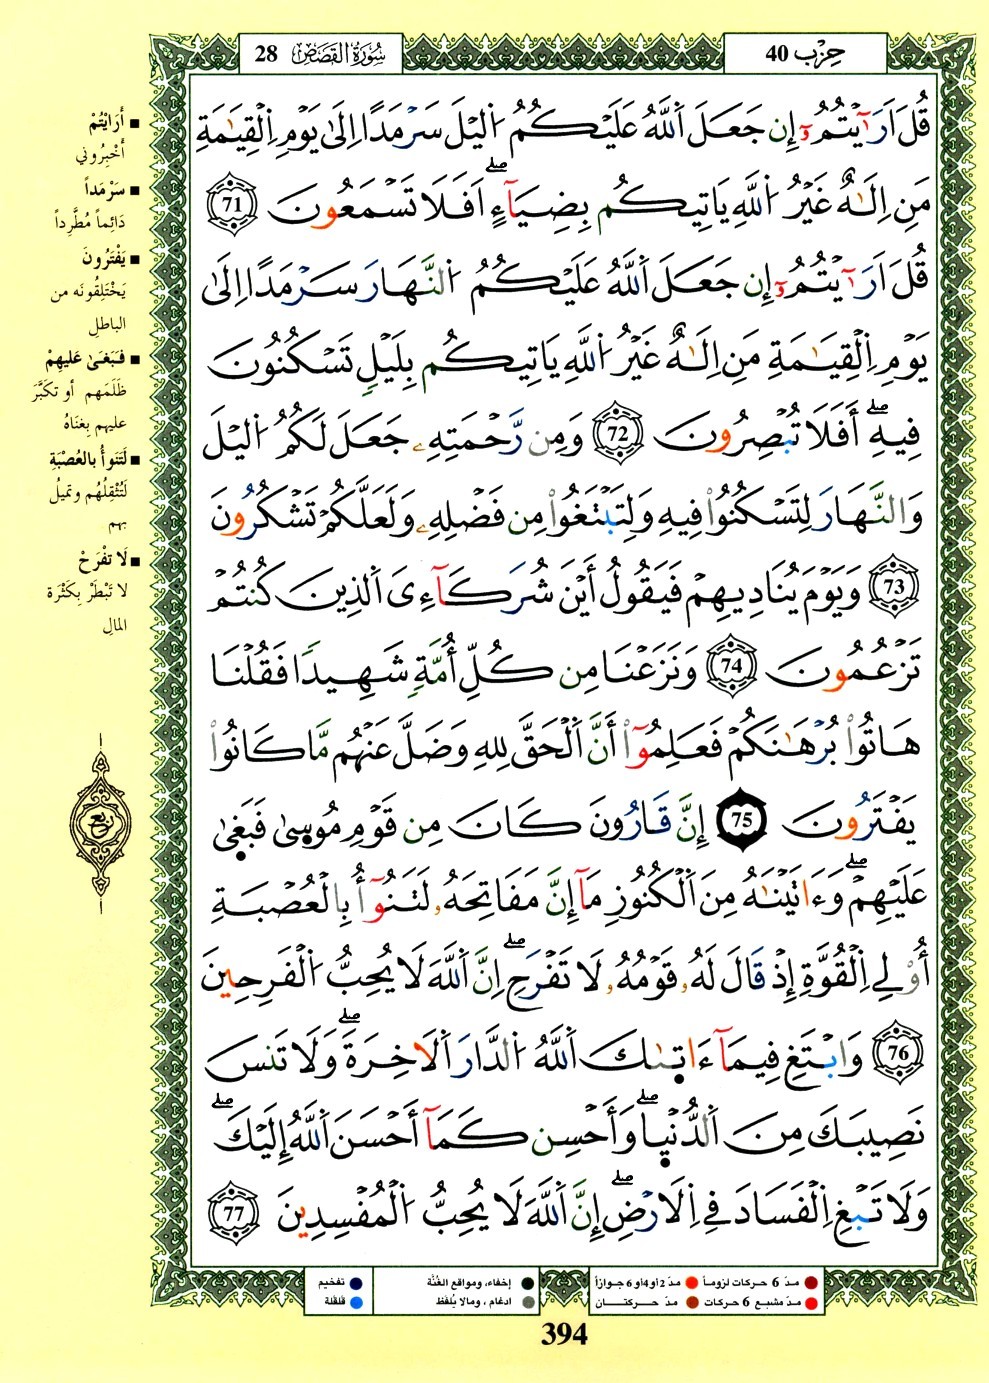 حِزْب 40
سُورَةُ القَصَصِ 28
قُلَ اَرَٰٓيْتُمُۥٓ إِن جَعَلَ اَ۬للَّهُ عَلَيْكُمُ اُ۬ليْلَ سَرْمَداً اِلَىٰ يَوْمِ اِ۬لْقِيَٰمَةِ
مَنِ اِلَٰهٌ غَيْرُ اُ۬للَّهِ يَاتِيكُم بِضِيَآءٍ ۖ اَفَلَا تَسْمَعُونَ 71
قُلَ اَرَٰٓيْتُمُۥٓ إِن جَعَلَ اَ۬للَّهُ عَلَيْكُمُ اُ۬لنَّهَارَ سَرْمَداً اِلَىٰ
يَوْمِ اِ۬لْقِيَٰمَةِ مَنِ اِلَٰهٌ غَيْرُ اُ۬للَّهِ يَاتِيكُم بِلَيْلٖ تَسْكُنُونَ
فِيهِ ۖ أَفَلَا تُبْصِرُونَ 72 وَمِن رَّحْمَتِهِۦ جَعَلَ لَكُمُ اُ۬ليْلَ
وَالنَّهَارَ لِتَسْكُنُواْ فِيهِ وَلِتَبْتَغُواْ مِن فَضْلِهِۦ وَلَعَلَّكُمْ تَشْكُرُونَ
73 وَيَوْمَ يُنَادِيهِمْ فَيَقُولُ أَيْنَ شُرَكَآءِىَ اَ۬لذِينَ كُنتُمْ
تَزْعُمُونَ 74 وَنَزَعْنَا مِن كُلِّ أُمَّةٖ شَهِيداً فَقُلْنَا
هَاتُواْ بُرْهَٰنَكُمْ فَعَلِمُوٓاْ أَنَّ اَ۬لْحَقَّ لِلهِ وَضَلَّ عَنْهُم مَّا كَانُواْ
يَفْتَرُونَ 75 إِنَّ قَارُونَ كَانَ مِن قَوْمِ مُوسىٰ فَبَغىٰ
عَلَيْهِمْ ۖ وَءَاتَيْنَٰهُ مِنَ اَ۬لْكُنُوزِ مَآ إِنَّ مَفَاتِحَهُۥ لَتَنُوٓأُ بِالْعُصْبَةِ
أُوْلِے اِ۬لْقُوَّةِ إِذْ قَالَ لَهُۥ قَوْمُهُۥ لَا تَفْرَحِ ۖ اِنَّ اَ۬للَّهَ لَا يُحِبُّ اُ۬لْفَرِحِينَ
76 وَابْتَغِ فِيمَآ ءَاتىٰكَ اَ۬للَّهُ اُ۬لدَّارَ اَ۬لَاخِرَةَ ۖ وَلَا تَنسَ
نَصِيبَكَ مِنَ اَ۬لدُّنْيا ۖ وَأَحْسِن كَمَآ أَحْسَنَ اَ۬للَّهُ إِلَيْكَ ۖ
وَلَا تَبْغِ اِ۬لْفَسَادَ فِے اِ۬لَارْضِ ۖ إِنَّ اَ۬للَّهَ لَا يُحِبُّ اُ۬لْمُفْسِدِينَ 77
■ أَرَايْتُمْ
أَخْبِرُوني
■ سَرْمَداً
دَائماً مُطَّرِداً
■ يَفْتَرُونَ
يَخْتَلِقُونَه من
الباطلِ
■ فَبَغَىٰ عَليهِمْ
ظَلَمَهم أو تكَبَّرَ
عليهم بِغِنَاهُ
■ لَتَنوأُ بالعُصْبَةِ
لَتُثْقِلُهُم وتميلُ
بهم
■ لَا تفْرَحْ
لا تَبْطَرْ بِكَثْرَة
المالِ
ربع
● مدّ 6 حركات لزوماً ● مدّ 2 أو 4 أو 6 جوازاً
● مدّ مشبع 6 حركات ● مدّ حركتان
● إخفاء، ومواقع الغُنَّة
● ادغام ، ومالا يُلفَظ
● تفخيم
● قلقلة
394